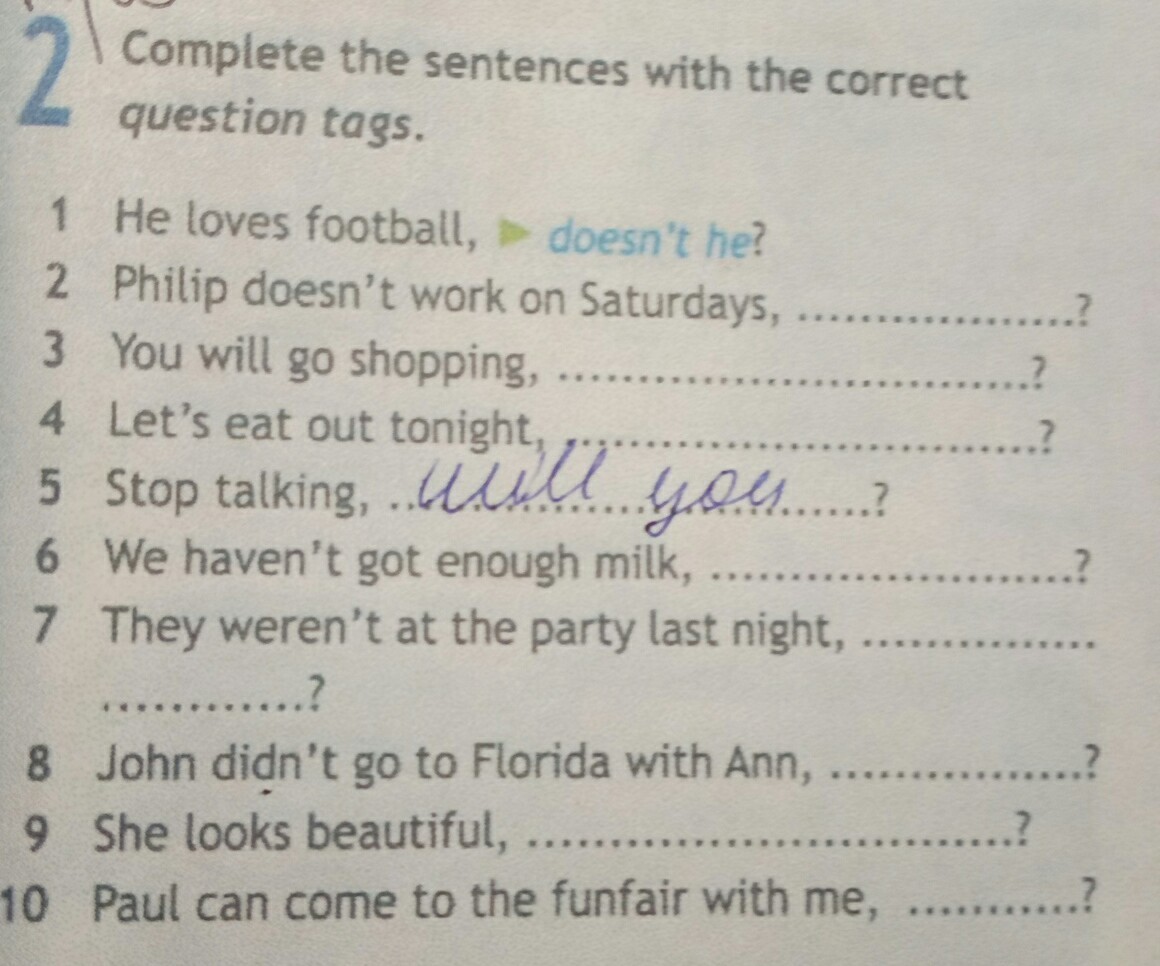 2 Complete the sentences with the correct
question tags.
1 He loves football, ► doesn't he?
2 Philip doesn't work on Saturdays, ...................?
3 You will go shopping, ................................?
4 Let's eat out tonight, ................................?
5 Stop talking, will you ?
6 We haven't got enough milk, .........................?
7 They weren't at the party last night, ................
.............?
8 John didn't go to Florida with Ann, .................?
9 She looks beautiful, .................................?
10 Paul can come to the funfair with me, ............?